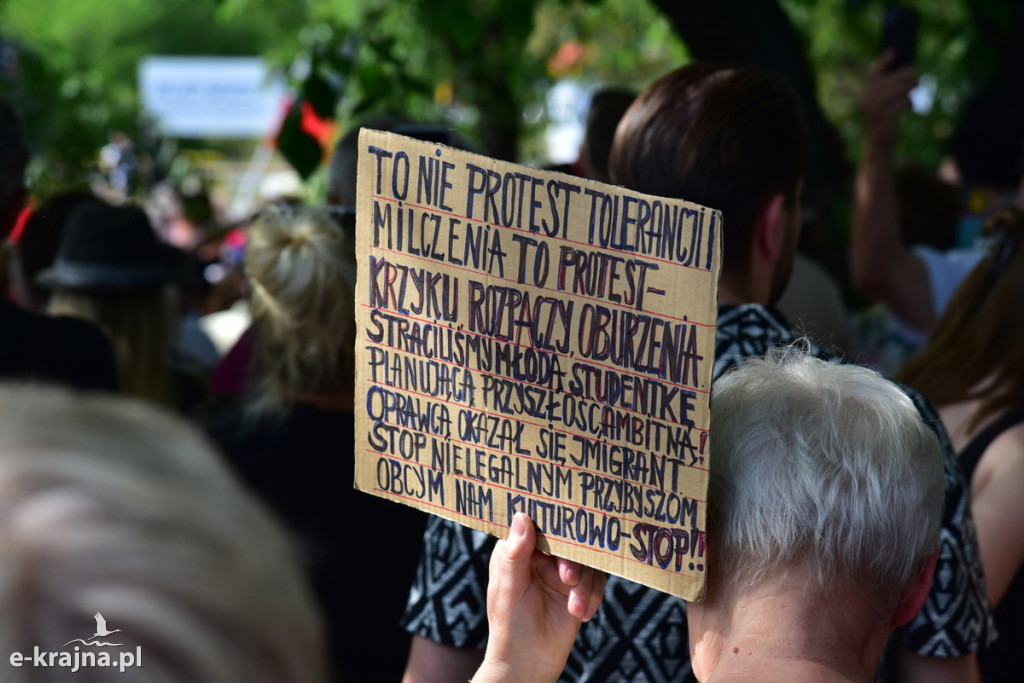 TO NIE PROTEST TOLERANCJI
MILCZENIA TO PROTEST-
KRZYKU, ROZPACZY, OBURZENIA
STRACILIŚMY MŁODĄ, STUDENTKĘ
PLANUJĄCĄ PRZYSZŁOŚĆ, AMBITNĄ!
OPRAWCĄ OKAZAŁ SIĘ JMIGRANT!
STOP NIELEGALNYM PRZYBYSZOM
OBCYM NAM KULTUROWO-STOP!!
e-krajna.pl